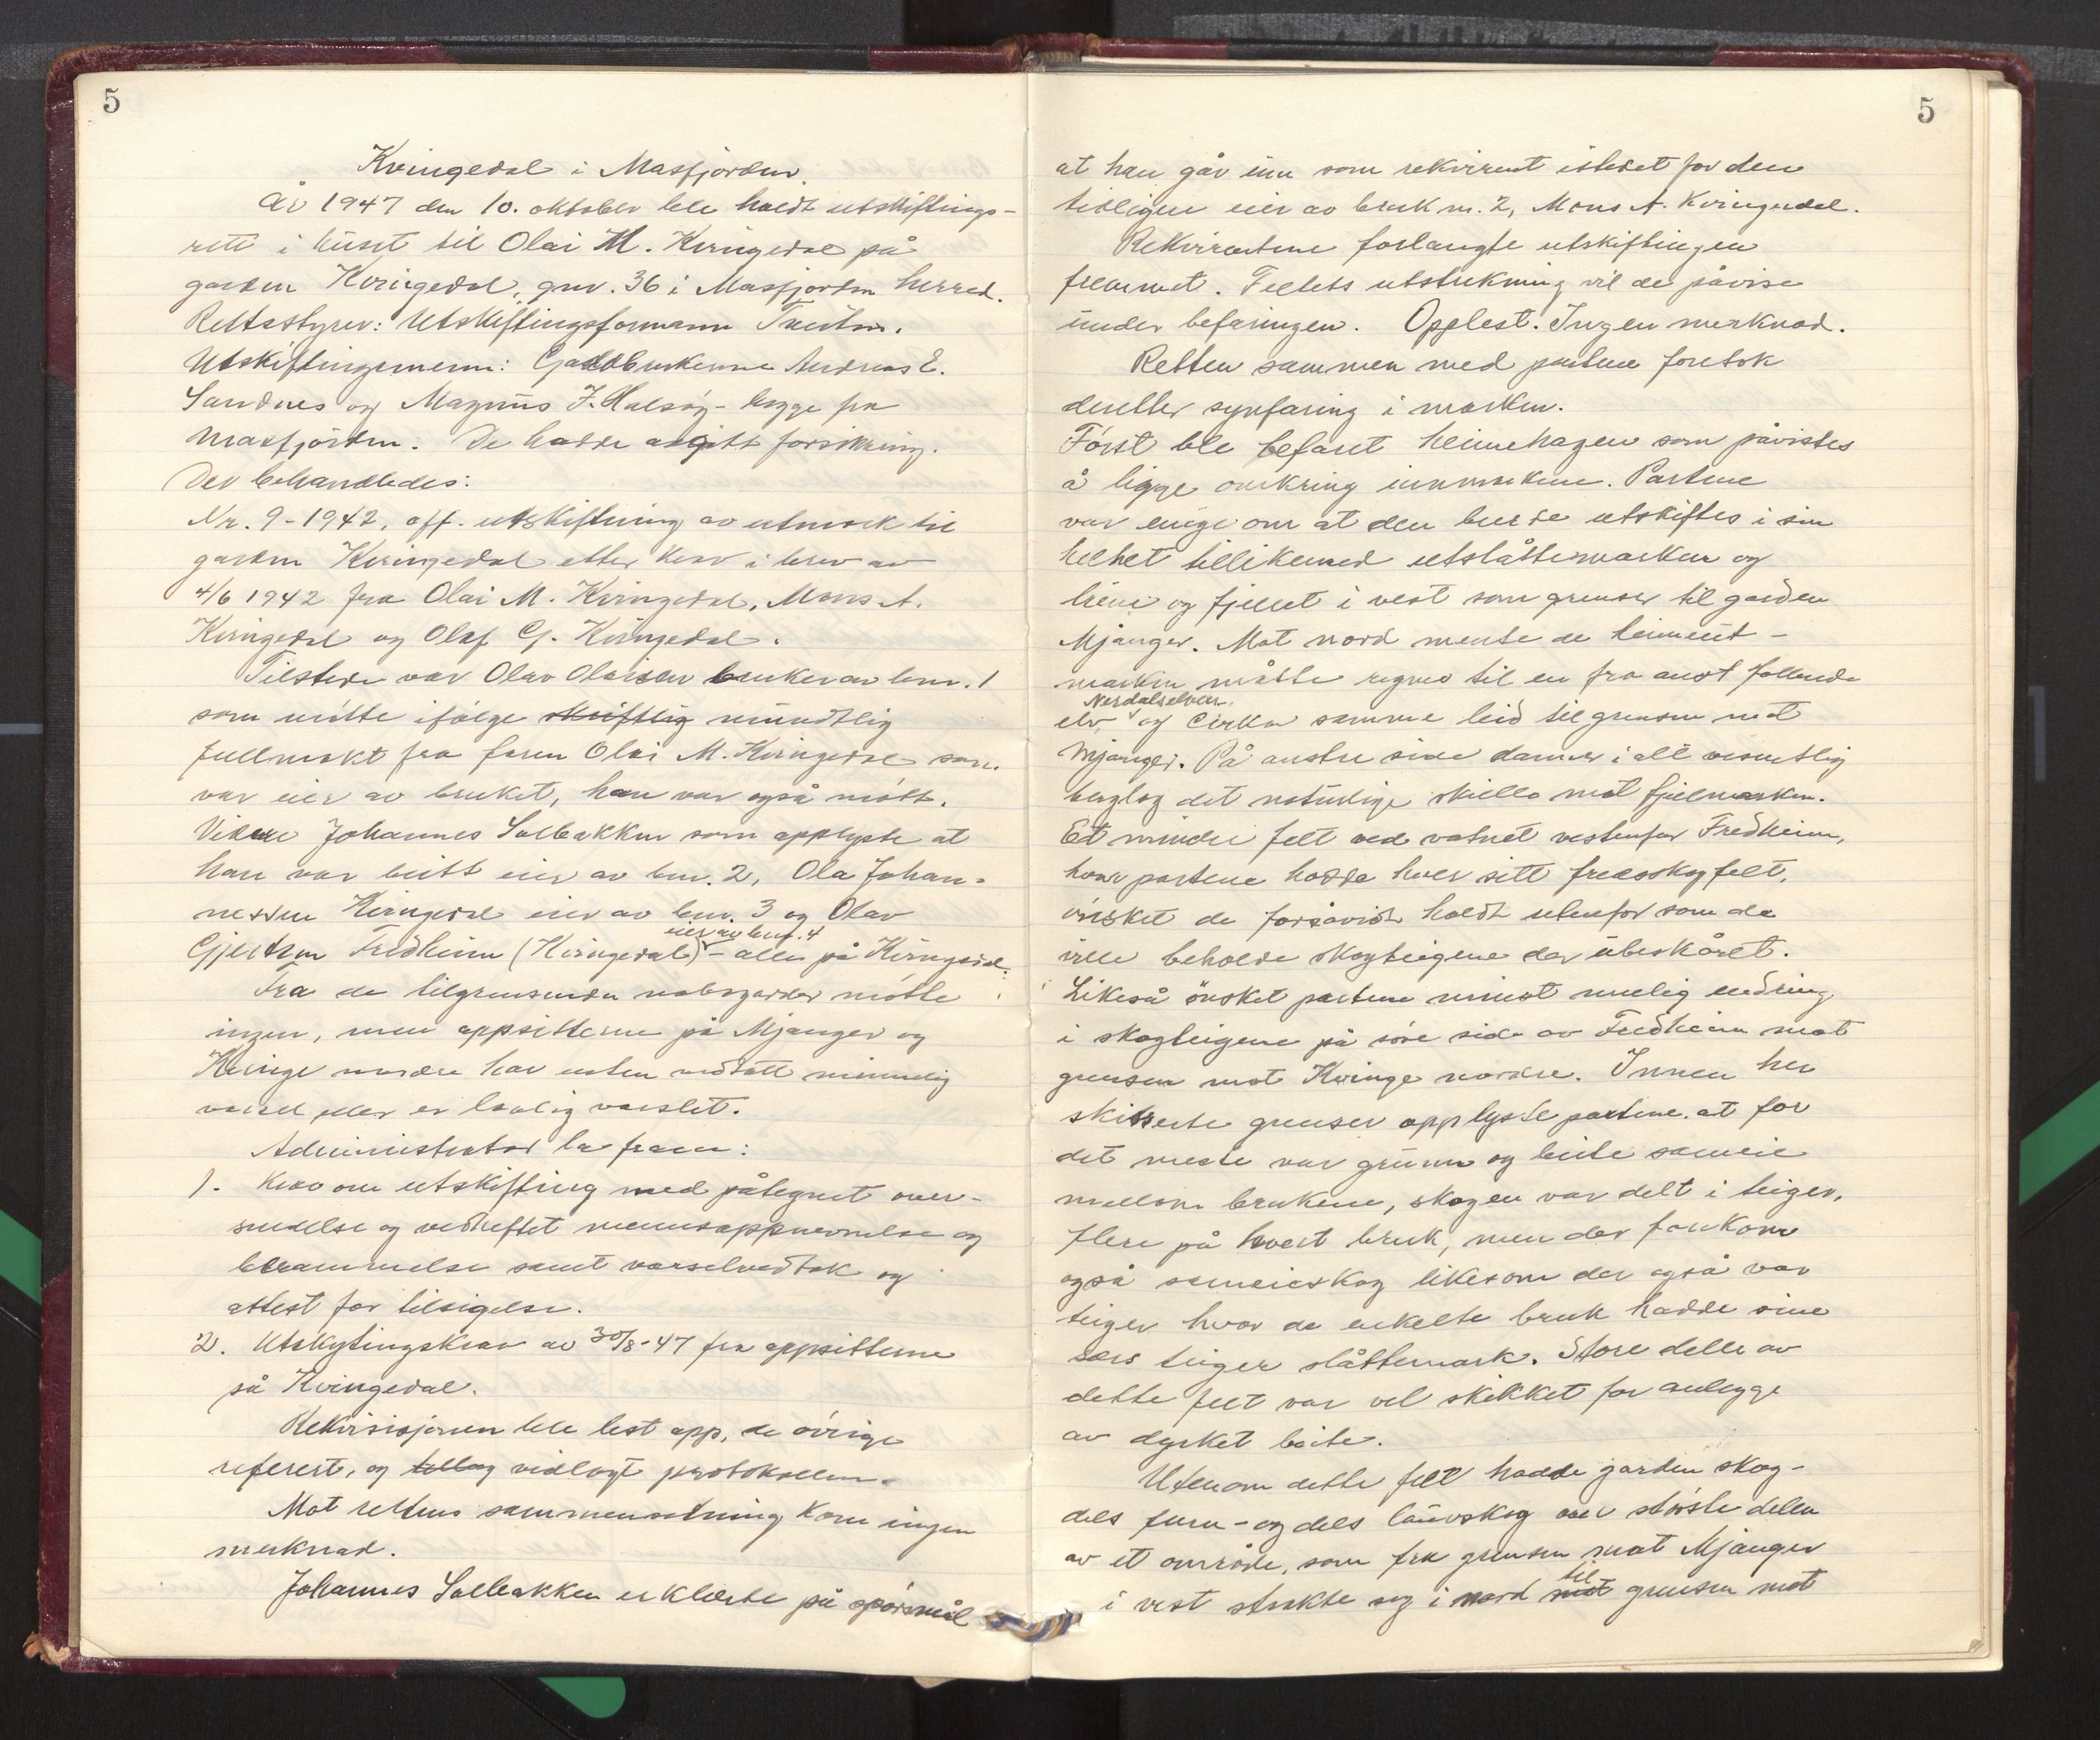 5
Kvingedal i Masfjorden.
År 1947 den 10. oktober ble holdt utskiftings-
rett i huset til Olai M. Kvingedal på
garden Kvingedal, gnr. 36 i Masfjorden herred.
Rettsstyrer: Utskiftingsformann
Utskiftingsmenn: Gardbrukerne Andreas E.
Sandnes og Magnus J. Halsøy - begge fra
Masfjorden. De hadde avgitt forsikring.
Der behandledes:
Nr. 9-1942, off. utskiftning av utmark til
garden Kvingedal etter krav i brev av
4/6 1942 fra Olai M. Kvingedal, Mons A.
Kvingedal og Olaf G. Kvingedal.
Tilstede var Olav Olaisen bruker av bnr. 1
som møtte ifølge skriftlig mundtlig
fullmakt fra faren Olai M. Kvingedal som
var eier av bruket, han var også møtt.
Videre Johannes Solbakken som opplyste at
han var blitt eier av bnr. 2, Ola Johan-
nessen Kvingedal eier av bnr. 3 og Olav
eier av bnr. 4
Gjertsen Fredheim (Kvingedal) - alle på Kvingedal.
Fra de tilgrensende nabogarder møtte
ingen, men oppsitterne på Mjanger og
Kvinge nordre har enten vedtatt minnelig
varsel eller er lovlig varslet.
Administrator la fram:
1. Krav om utskifting med påtegnet over-
sendelse og vedheftet mennsoppnevnelse og
berammelse samt varselvedtak og
attest for tilsigelse.
2. Utskytingskrav av 30/8-47 fra oppsitterne
på Kvingedal.
Rekvisisjonen ble lest opp, de øvrige
referert, og tillag vidlagt protokollen.
Mot rettens sammensetning kom ingen
merknad.
Johannes Solbakken erklærte på spørsmål
5
at han går inn som rekvirent istedet for den
tidligere eier av bruk nr. 2, Mons A. Kvingedal.
Rekvirentene forlangte utskiftingen
fremmet. Feltets utstrekning vil de påvise
under befaringen. Opplest. Ingen merknad.
Retten sammen med partene foretok
deretter synfaring i marken.
Først ble befaret heimehagen som påvistes
å ligge omkring innmarkene. Partene
var enige om at den burde utskiftes i sin
helhet tillikemed utslåttemarken og
liene og fjellet i vest som grenser til garden
Mjanger. Mot nord mente de heimeut-
marken måtte regnes til en fra aust fallende
Nesdalselven
elv og cirka samme leid til grensen mot
Mjanger. På austre side danner i all vesentlig
berglag det naturlige skille mot fjellmarken.
Et mindre felt ved vatnet vestenfor Fredheim,
hvor partene hadde hver sitt fredskogfelt,
ønsket de forsåvidt holdt utenfor som de
ville beholde skogteigene der ubeskåret.
Likeså ønsket partene minst mulig endring
i skogteigene på søre side av Fredheim mot
grensen mot Kvinge nordre. Innen her
skisserte grenser opplyste partene at for
det meste var grunn og beite sameie
mellom brukene, skogen var delt i teiger,
flere på hvert bruk, men der forekom
også sameieskog likesom der også var
teiger hvor de enkelte bruk hadde sine
sers teiger slåttemark. Store deler av
dette felt var vel skikket for anlegge
av dyrket beite.
Utenom dette felt hadde garden skog -
dels furu- og dels lauvskog over største delen
av et område, som fra grensen mot Mjanger
til
i vest strakte seg i nord mot grensen mot